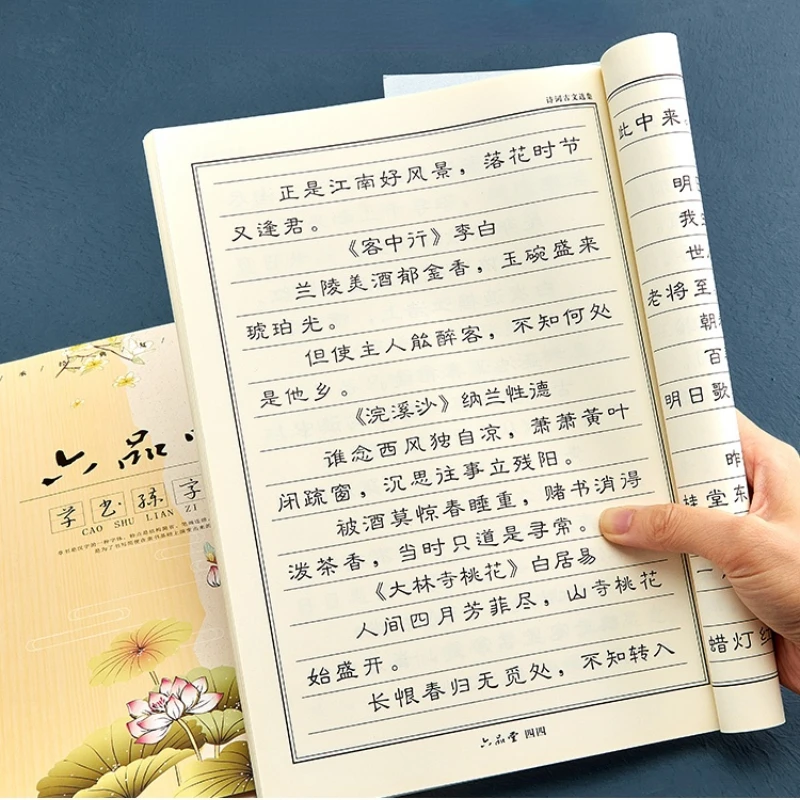 诗词古文选集
正是江南好风景，落花时节
又逢君。
《客中行》李白
兰陵美酒郁金香，玉碗盛来
琥珀光。
但使主人能醉客，不知何处
是他乡。
《浣溪沙》纳兰性德
谁念西风独自凉，萧萧黄叶
闭疏窗，沉思往事立残阳。
被酒莫惊春睡重，赌书消得
泼茶香，当时只道是寻常。
《大林寺桃花》白居易
人间四月芳菲尽，山寺桃花
始盛开。
长恨春归无觅处，不知转入
六品堂 四四
此中来
明
我
世
老将至
朝
百
明日歌
昨
桂堂东
一
蜡灯红
六品
学书练字
CAO SHU LIAN ZI